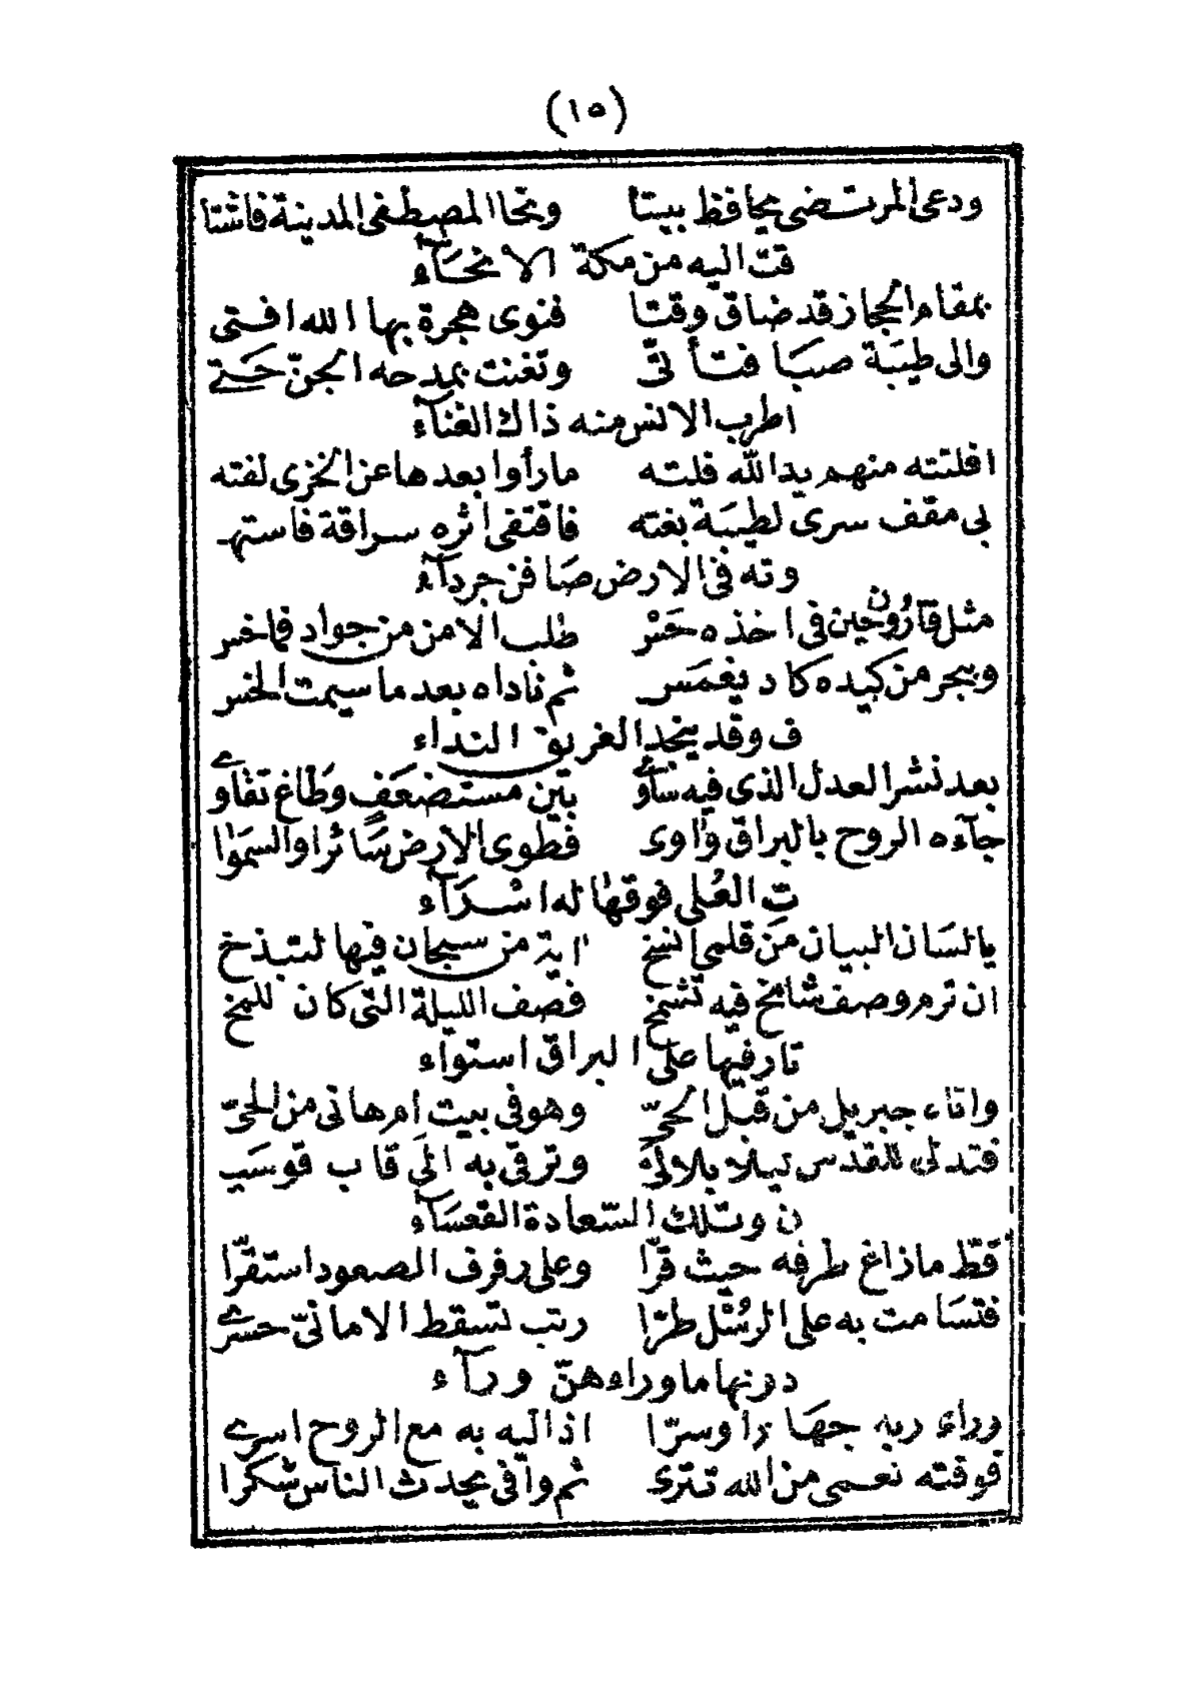 (١٥)
ودعى المرتضى يحافظ بيتا ونحا المصطفى المدينة فاشتا
قت اليه من مكة الانحآء
بمقام الحجاز قد ضاق وقتا فنوى هجرة بها الله افتى
والى طيبة صبا فتأتى وتغنت بمدحه الجنّ حتے
اطرب الانس منه ذاك الغنآء
افلتته منهم يد الله فلته ما رأوا بعدها عن الخزى لفته
بى مقف سرى لطيبة بغته فاقتفى اثره سراقة فاستهـ
وته فى الارض صافن جردآء
مثل قارون حين فى اخذه خسر طلب الامن من جواد فما خسر
وببحر من كيده كاد يغمس ثم ناداه بعد ما سيمت الخسـ
ف وقد ينجد الغريق النداء
بعد نشر العدل الذى فيه ساوٰے بين مستضعف وطاغ تقاوے
جآءه الروح بالبراق واوى فطوى الارض سائرا والسموا
ت العُلى فوقها له اسرآء
يا لسان البيان من قلمى انسخ اية من سبحان فيها لتبذخ
ان ترم وصف شامخ فيه تشمخ فصف الليلة التى كان للمخ
تار فيها على البراق استوآء
واتاء جبريل من قبل الحىّ وهو فى بيت ام هانى من الحىّ
فتدلى للقدس ليلا بلا لىّ وترقى به الى قاب قوسيـ
ن وتلك السّعادة القعسآء
قطّ ما زاغ طرفه حيث قرّا وعلى رفرف الصعود استقرّا
فتسامت به على الرسُل طرّا رتب تسقط الامانىّ حسرے
دونها ما وراءهنّ ورآء
وراء ربه جهارا وسرّا اذ اليه به مع الروح اسرے
فوقته نعمى من الله تترى ثم وافى يحدث الناس شكرا